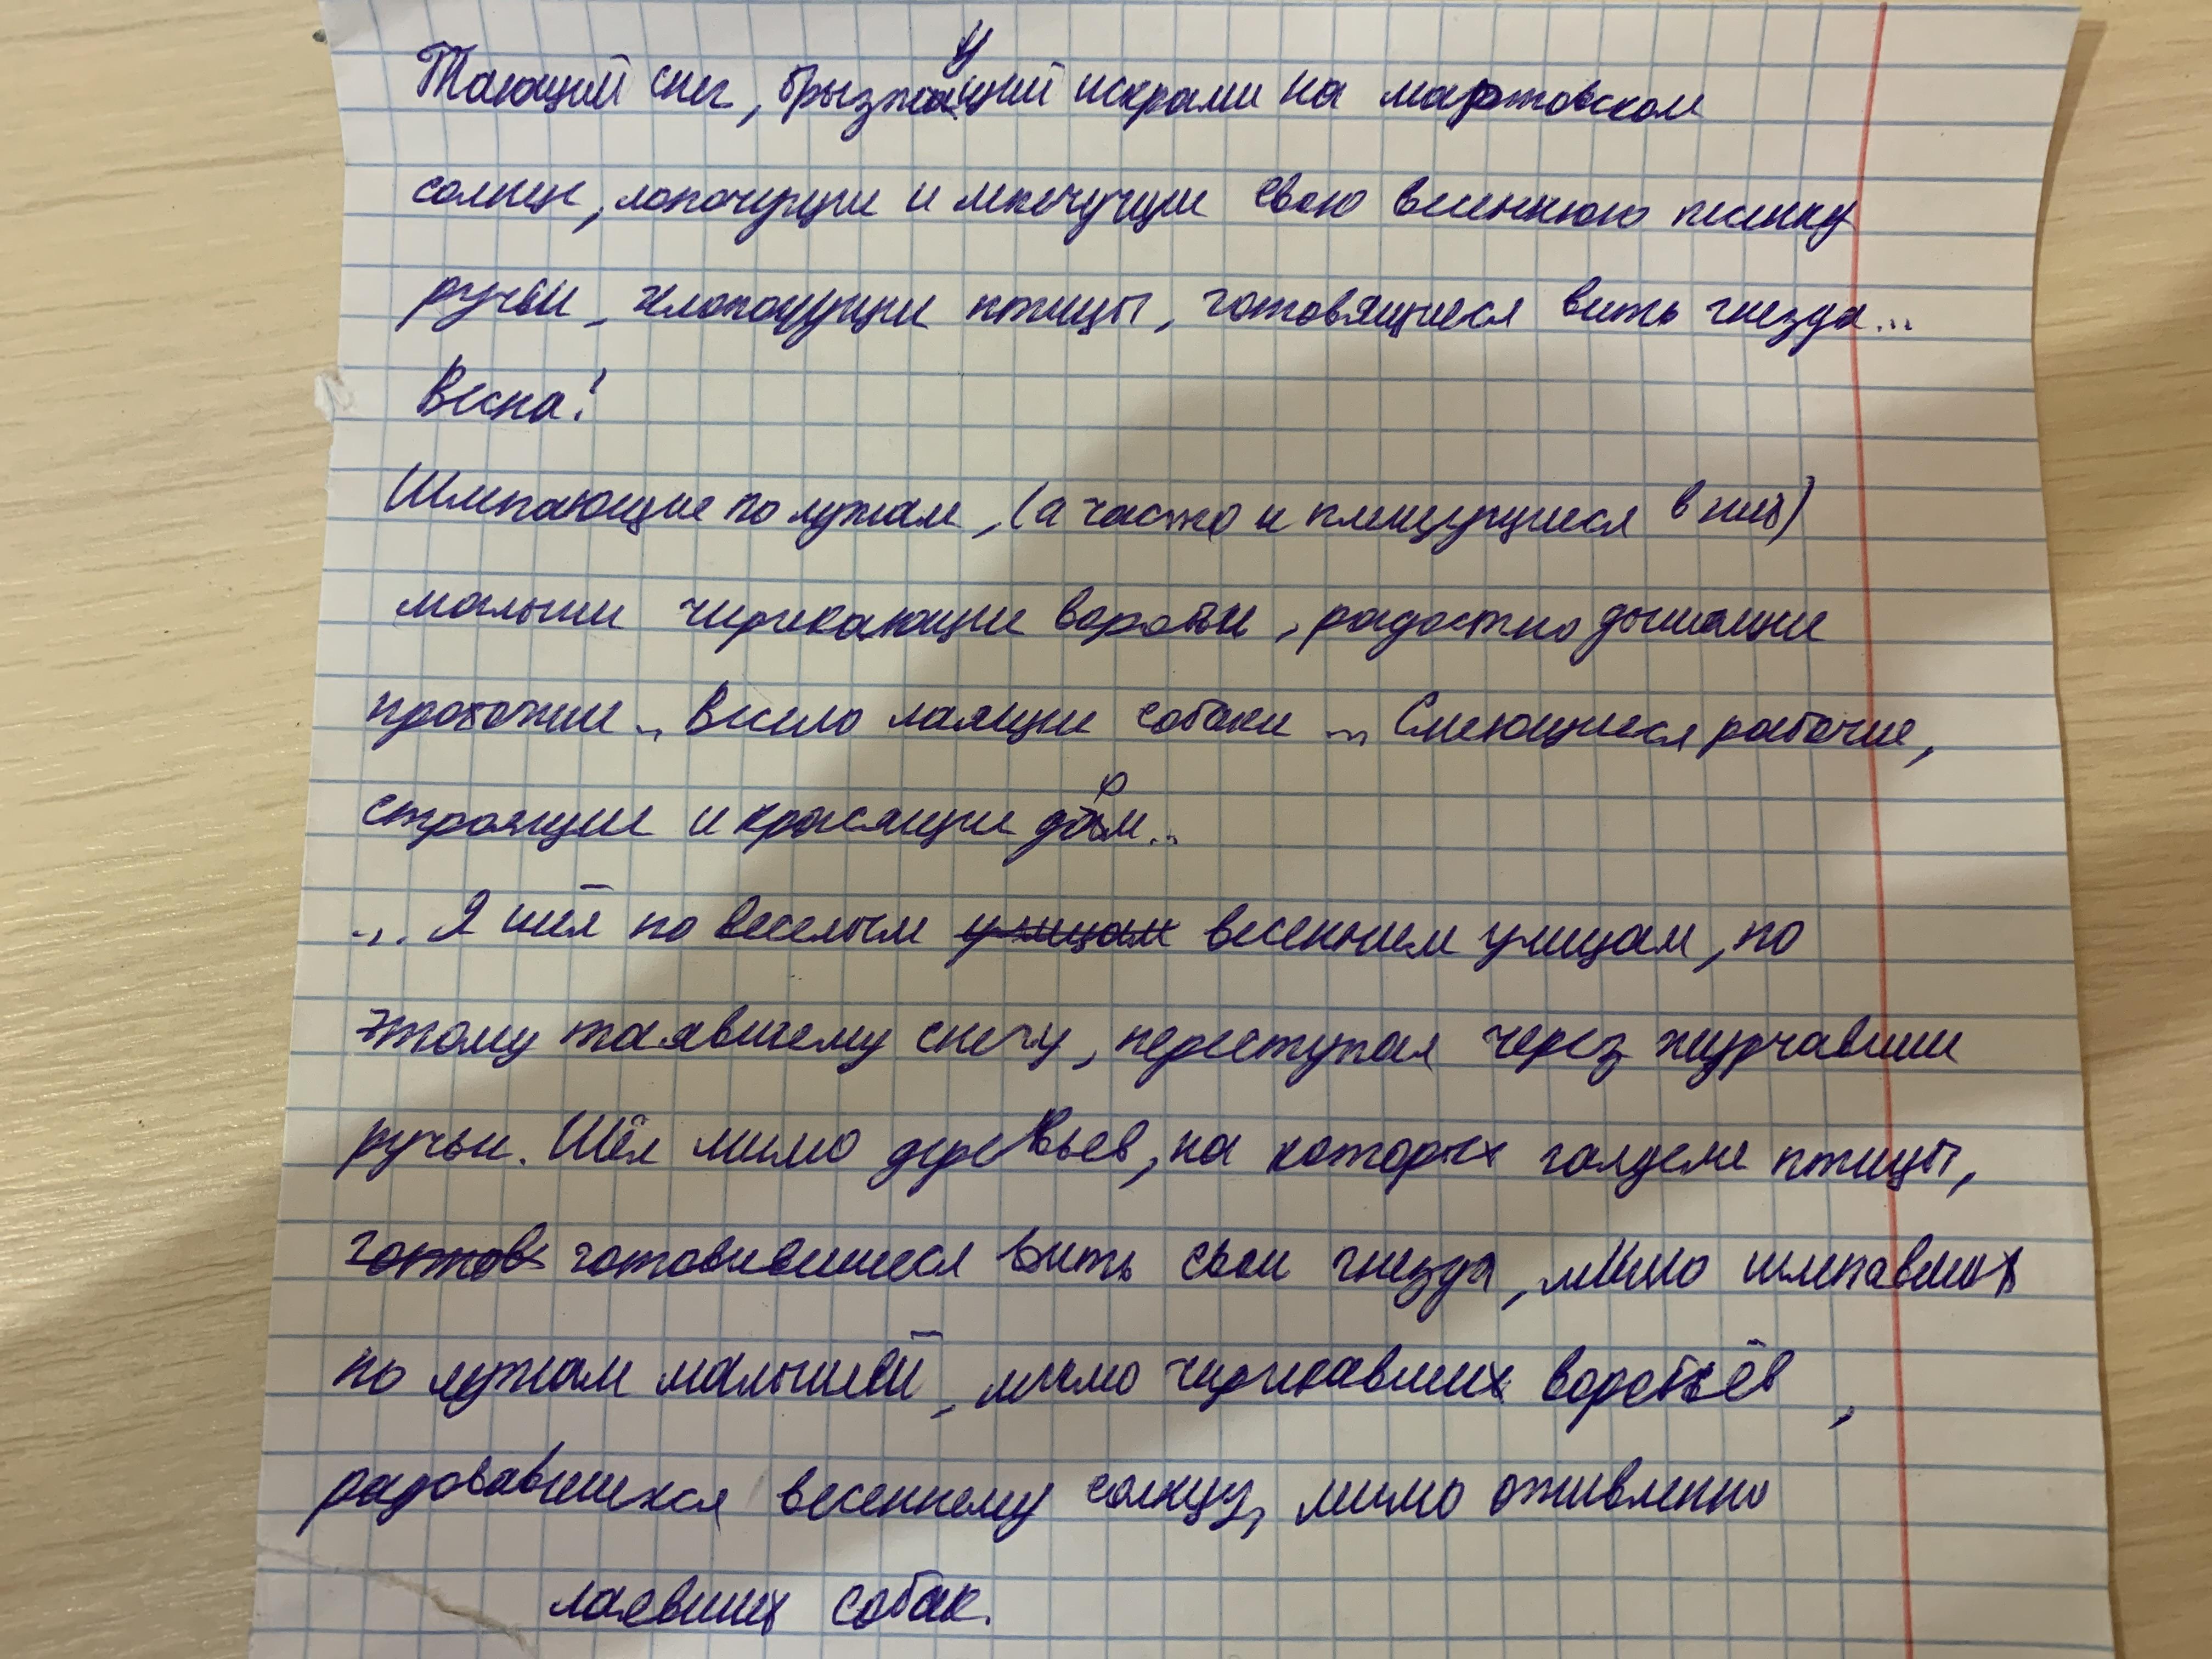 Тающий снег, брызжущий искрами на мартовском
солнце, лопочущие и лепечущие свою весеннюю песенку
ручьи, хлопочущие птицы, готовящиеся вить гнезда...
Весна!
Шлепающие по лужам, (а часто и плещущиеся в них)
малыши чирикающие воробьи, радостно дышащие
прохожие... Весело лающие собаки ... Смеющиеся рабочие,
строящие и красящие дом...
... Я шёл по веселым улицам весенним улицам, по
этому таявшему снегу, переступая через журчавшие
ручьи. Шёл мимо деревьев, на которых галдели птицы,
готов готовившиеся вить свои гнезда, мимо шлепавших
по лужам малышей, мимо чирикавших воробьёв,
радовавшихся весеннему солнцу, мимо оживленно
лаевших собак.